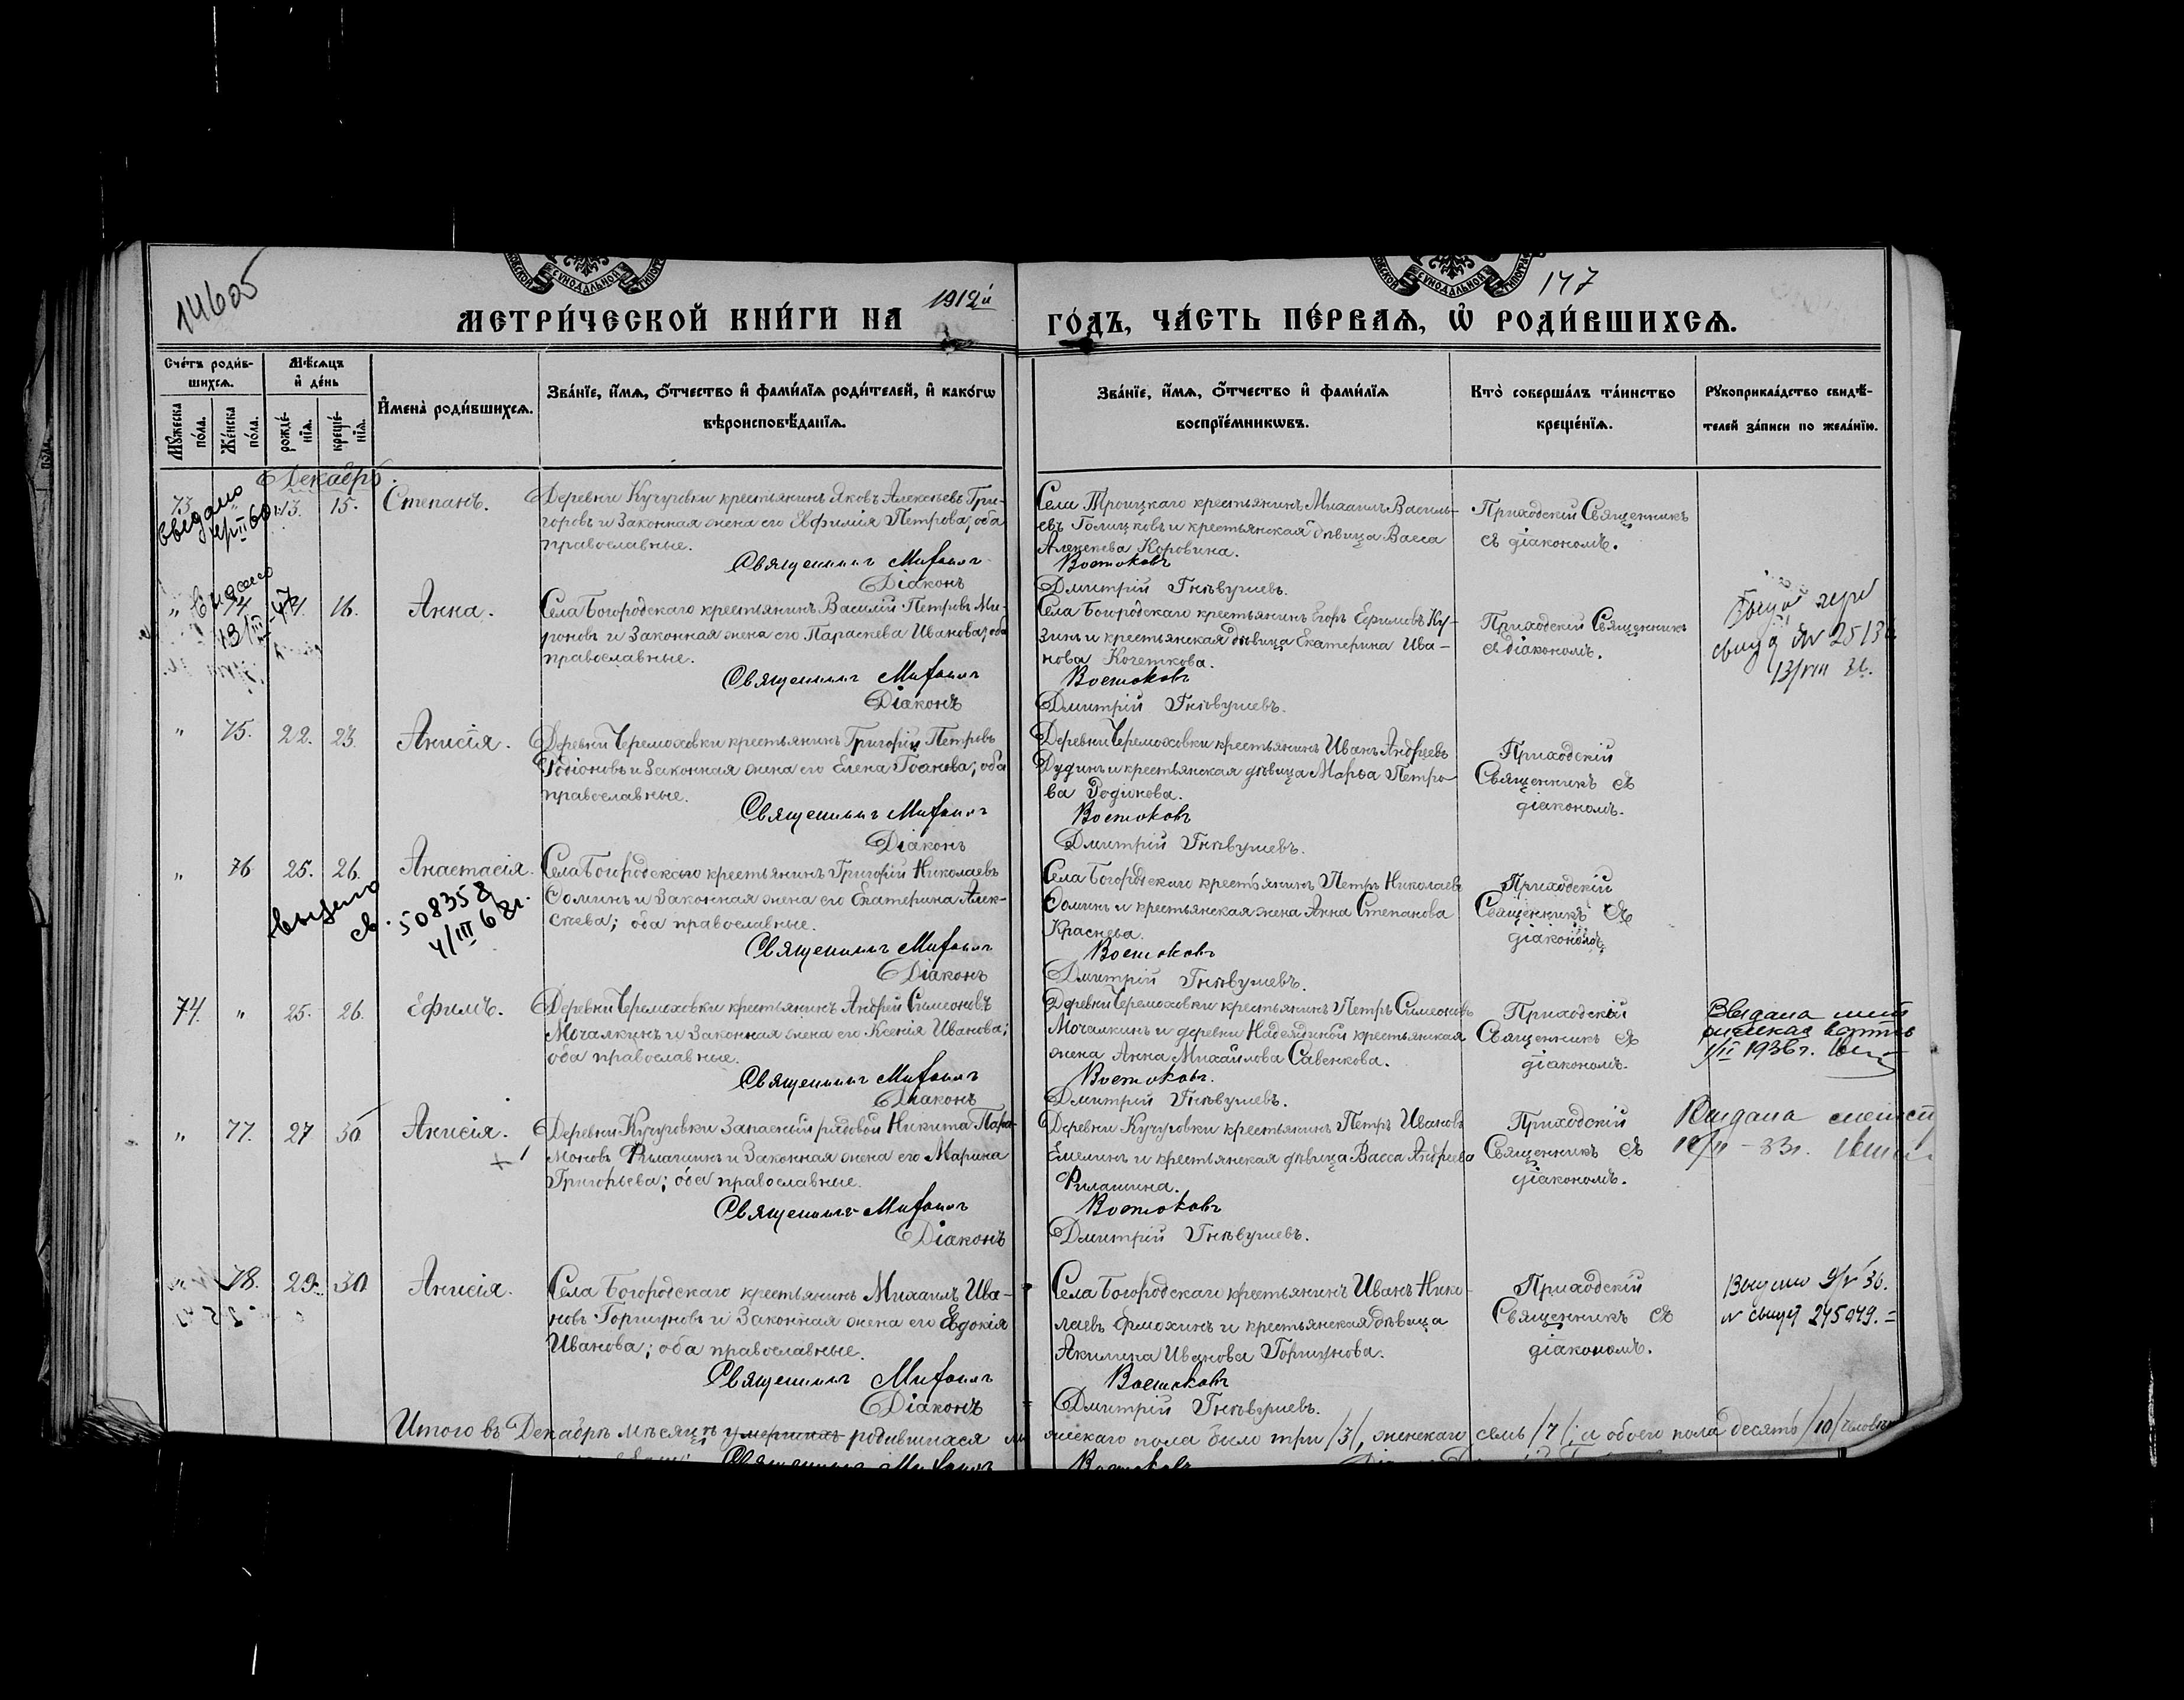 14605
147
МЕТРИ́ЧЕСКОЙ КНИ́ГИ НА 1912й ГО́ДЪ, ЧА́СТЬ ПЕ́РВАѦ, Ѡ РОДИ́ВШИХСѦ.
Сче́тъ роди́в-
шихсѧ.
Мꙋжеска по́ла.
Же́нска по́ла.
Мѣ́сѧцъ
и҆ де́нь
рожде́-
нїѧ.
креще́-
нїѧ.
И҆мена̀ роди́вшихсѧ.
Зва́нїе, и҆́мѧ, ѻ҆́тчество и҆ фами́лїѧ роди́телей, и҆ како́гѡ
вѣроисповѣ́данїѧ.
Зва́нїе, и҆́мѧ, ѻ҆́тчество и҆ фами́лїѧ
воспрїе́мникѡвъ.
Кто̀ соверша́лъ та́инство
креще́нїѧ.
Рꙋкоприкла́дство свидѣ́-
телей за́писи по жела́нїю.
Декабрь.
73. 13. 15. Степанъ.
Выдано
Деревни Кучуровки крестьянинъ Яковъ Алексѣевъ Гри-
горовъ и законная жена его Евфимія Петрова; оба
православные.
Священникъ Митрофанъ
Діаконъ
Села Троицкаго крестьянинъ Михаилъ Василь-
евъ Голицковъ и крестьянская дѣвица Васса
Алексѣева Коровина.
Востоковъ
Дмитрій Гнѣвушевъ.
Приходскій Священникъ
съ діакономъ.
" 74. 16. Анна.
Выдано
13/III-47
Села Богородскаго крестьянинъ Василій Петровъ Ми-
роновъ и законная жена его Параскева Иванова; оба
православные.
Священникъ Митрофанъ
Діаконъ
Села Богородскаго крестьянинъ Егоръ Ефимовъ Ку-
зинъ и крестьянская дѣвица Екатерина Ива-
нова Кочеткова.
Востоковъ
Дмитрій Гнѣвушевъ.
Приходскій Священникъ
съ діакономъ.
13/VIII
" 75. 22. 23. Анисія.
Деревни Черемоховки крестьянинъ Григорій Петровъ
Родіоновъ и законная жена его Елена Іоанова; оба
православные.
Священникъ Митрофанъ
Діаконъ
Деревни Черемоховки крестьянинъ Иванъ Андреевъ
Дудинъ и крестьянская дѣвица Марѳа Петро-
ва Родіонова.
Востоковъ
Дмитрій Гнѣвушевъ.
Приходскій
Священникъ съ
діакономъ.
" 76 25. 26. Анастасія.
Выдано
св. 508358
4/III 68г.
Села Богородскаго крестьянинъ Григорій Николаевъ
Соминъ и законная жена его Екатерина Алек-
сѣева; оба православные.
Священникъ Митрофанъ
Діаконъ
Села Богородскаго крестьянинъ Петръ Николаевъ
Соминъ и крестьянская жена Анна Степанова
Краснева.
Востоковъ
Дмитрій Гнѣвушевъ.
Приходскій
Священникъ съ
діакономъ.
74. " 25. 26. Ефимъ.
Деревни Черемоховки крестьянинъ Андрей Симеоновъ
Мочалкинъ и законная жена его Ксенія Иванова;
оба православные.
Священникъ Митрофанъ
Діаконъ
Деревни Черемоховки крестьянинъ Петръ Симеоновъ
Мочалкинъ и деревни Надеядиной крестьянская
жена Анна Михайлова Савенкова.
Востоковъ.
Дмитрій Гнѣвушевъ.
Приходскій
Священникъ съ
діакономъ.
Выдана
1/II 1936г.
" 77. 27 30 Анисія.
Деревни Кучуровки запасный рядовой Никита Пара-
моновъ Рилашинъ и законная жена его Марина
Григорьева; оба православные.
Священникъ Митрофанъ
Діаконъ
Деревни Кучуровки крестьянинъ Петръ Ивановъ
Емелинъ и крестьянская дѣвица Васса Андреева
Рилашина.
Востоковъ
Дмитрій Гнѣвушевъ.
Приходскій
Священникъ съ
діакономъ.
Выдана
" 78. 29. 30. Анисія.
Села Богородскаго крестьянинъ Михаилъ Ива-
новъ Горшуновъ и законная жена его Евдокія
Иванова; оба православные.
Священникъ Митрофанъ
Діаконъ
Села Богородскаго крестьянинъ Иванъ Нико-
лаевъ Ермохинъ и крестьянская дѣвица
Акилина Иванова Горшунова.
Востоковъ
Дмитрій Гнѣвушевъ.
Приходскій
Священникъ съ
діакономъ.
Выдано 9/V 36.
№ свид 245049.
Итого въ Декабрѣ мѣсяцѣ умершихъ родившихся мужескаго пола было три /3/, женскаго семь /7/; а обоего пола десять /10/ человѣкъ
Священникъ Митрофанъ Востоковъ